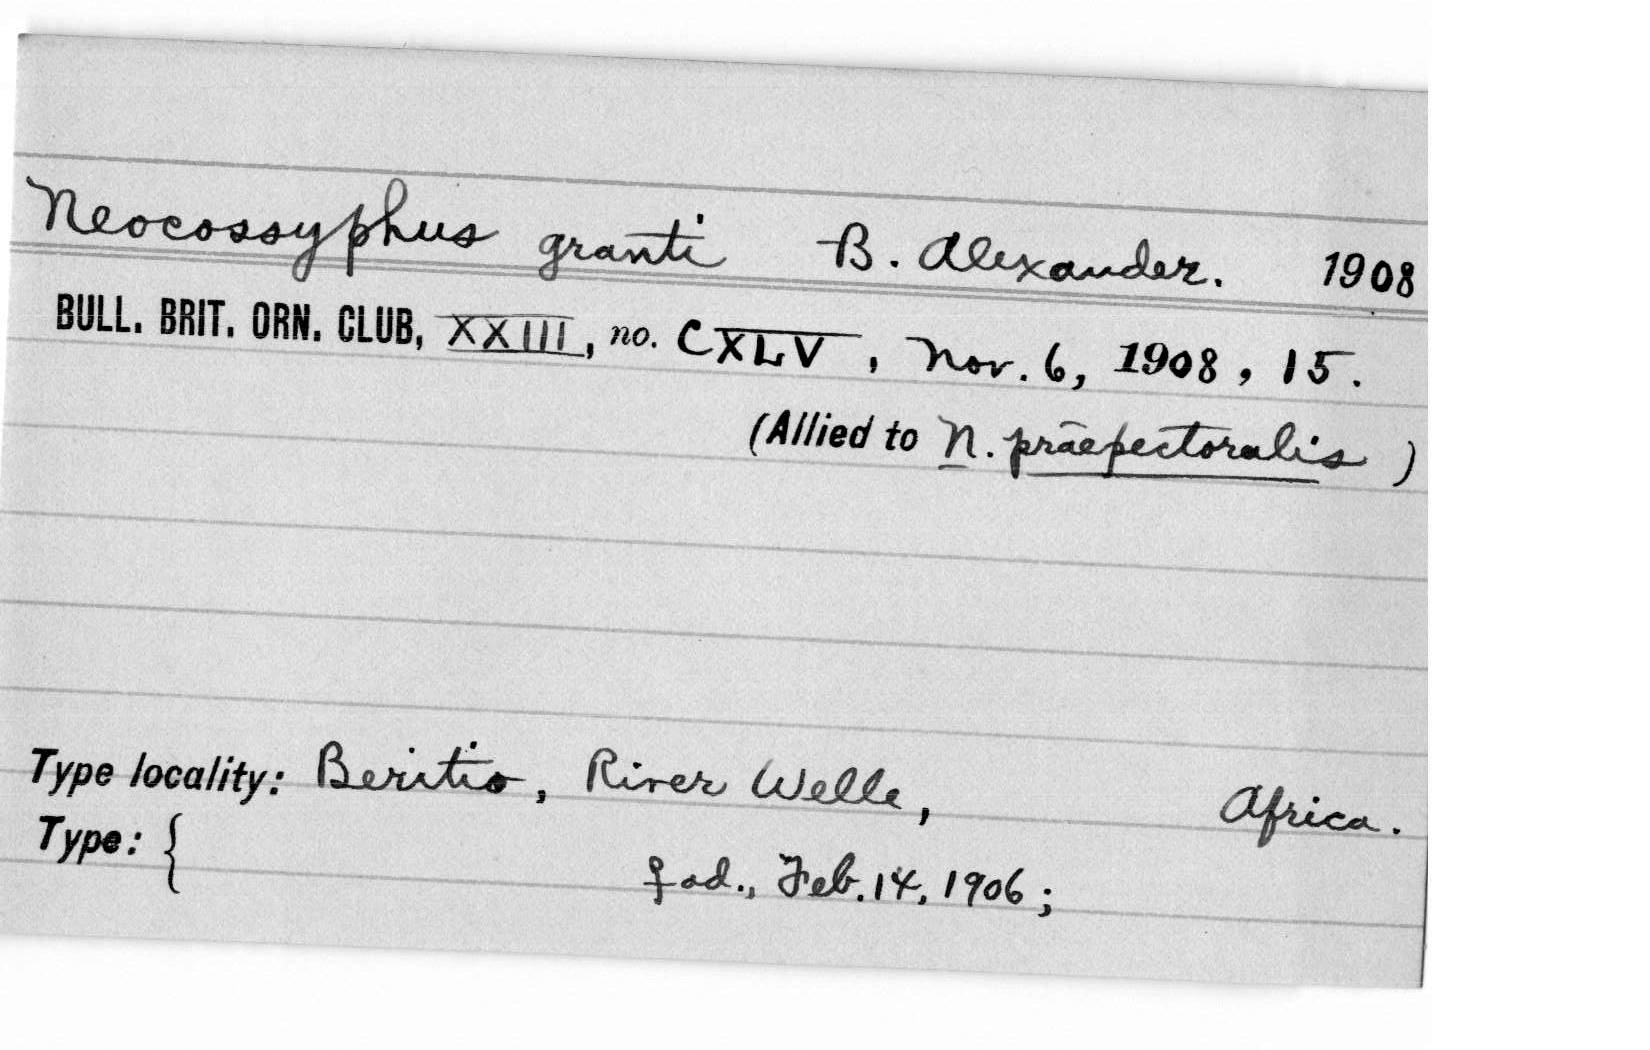 Neocossyphus granti B. Alexander. 1908
BULL. BRIT. ORN. CLUB, XXIII, no. CXLV, Nov. 6, 1908, 15.
(Allied to N. præpectoralis)
Type locality: Beritio, River Welle, Africa.
Type: { ♀ ad., Feb. 14, 1906;